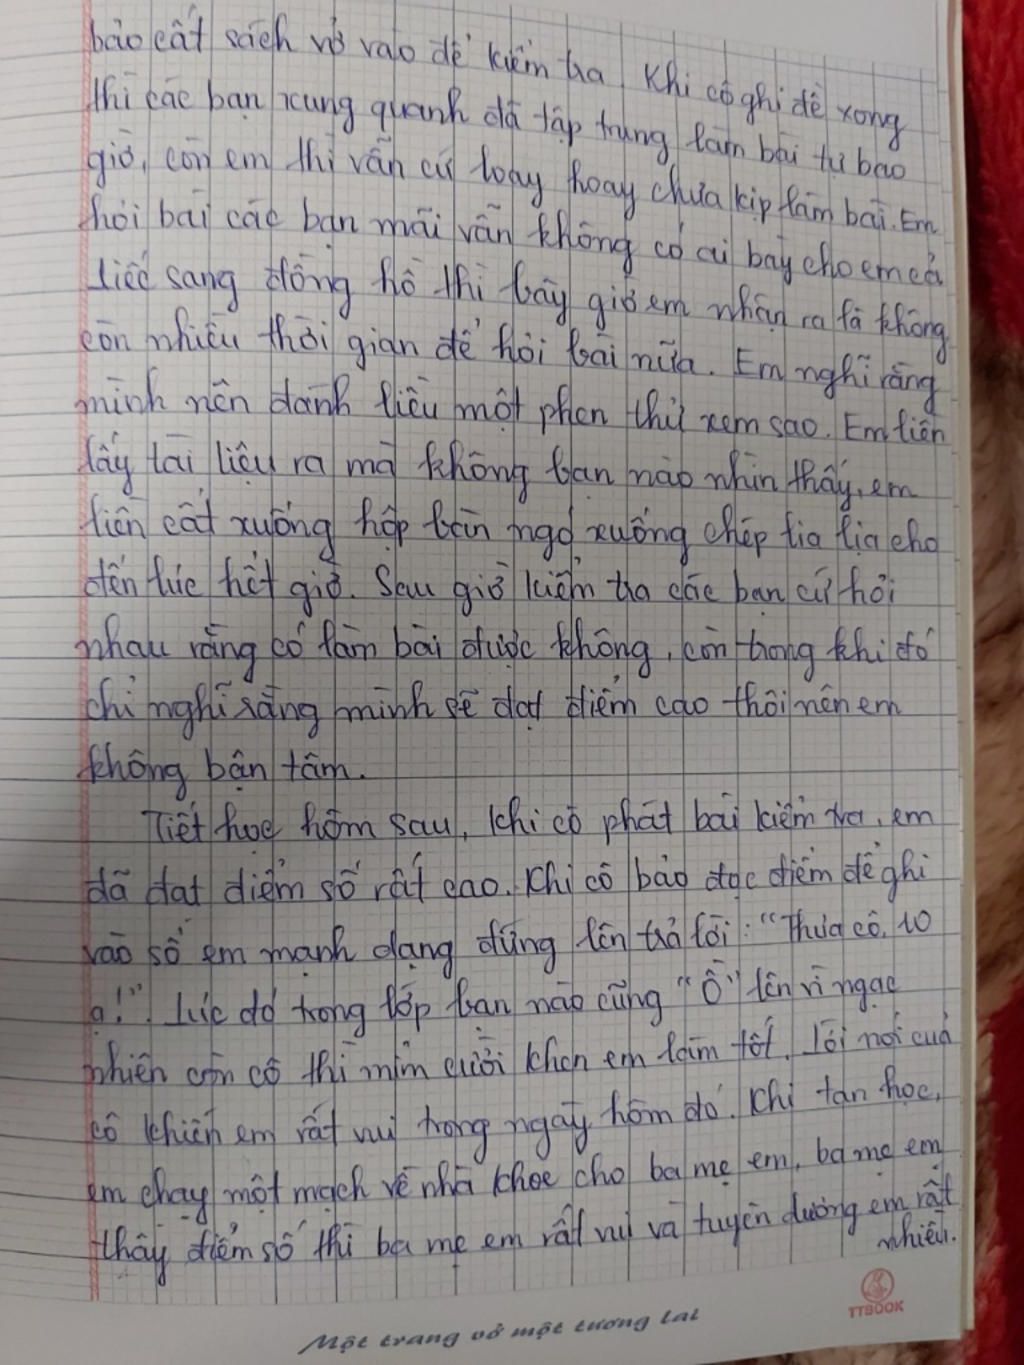 bảo cất sách vở vào để kiểm tra. Khi cô ghi đề xong
thì các bạn xung quanh đã tập trung làm bài tự bao
giờ, còn em thì vẫn cứ loay hoay chưa kịp làm bài. Em
hỏi bài các bạn mãi vẫn không có ai bày cho em cả
Liếc sang đồng hồ thì bây giờ em nhận ra là không
còn nhiều thời gian để hỏi bài nữa. Em nghĩ rằng
mình nên đánh liều một phen thử xem sao. Em liền
lấy tài liệu ra mà không bạn nào nhìn thấy, em
liền cất xuống hộp bàn ngó xuống chép lia lịa cho
đến lúc hết giờ. Sau giờ kiểm tra các bạn cứ hỏi
nhau rằng có làm bài được không, còn trong khi đó
chỉ nghĩ rằng mình sẽ đạt điểm cao thôi nên em
không bận tâm.
Tiết học hôm sau, khi cô phát bài kiểm tra, em
đã đạt điểm số rất cao. Khi cô bảo đọc điểm để ghi
vào sổ em mạnh dạng đứng lên trả lời: "Thưa cô, 10
ạ!". Lúc đó trong lớp bạn nào cũng "Ồ" lên vì ngạc
nhiên còn cô thì mỉm cười khen em làm tốt. Lời nói của
cô khiến em rất vui trong ngày hôm đó. Khi tan học,
em chạy một mạch về nhà khoe cho ba mẹ em, ba mẹ em
thấy điểm số thì ba mẹ em rất vui và tuyên dương em rất
nhiều.
Một trang vở một tương lai
TTBOOK